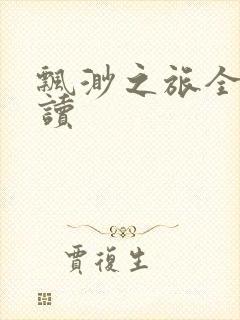 飄渺之旅全
讀
賈復生